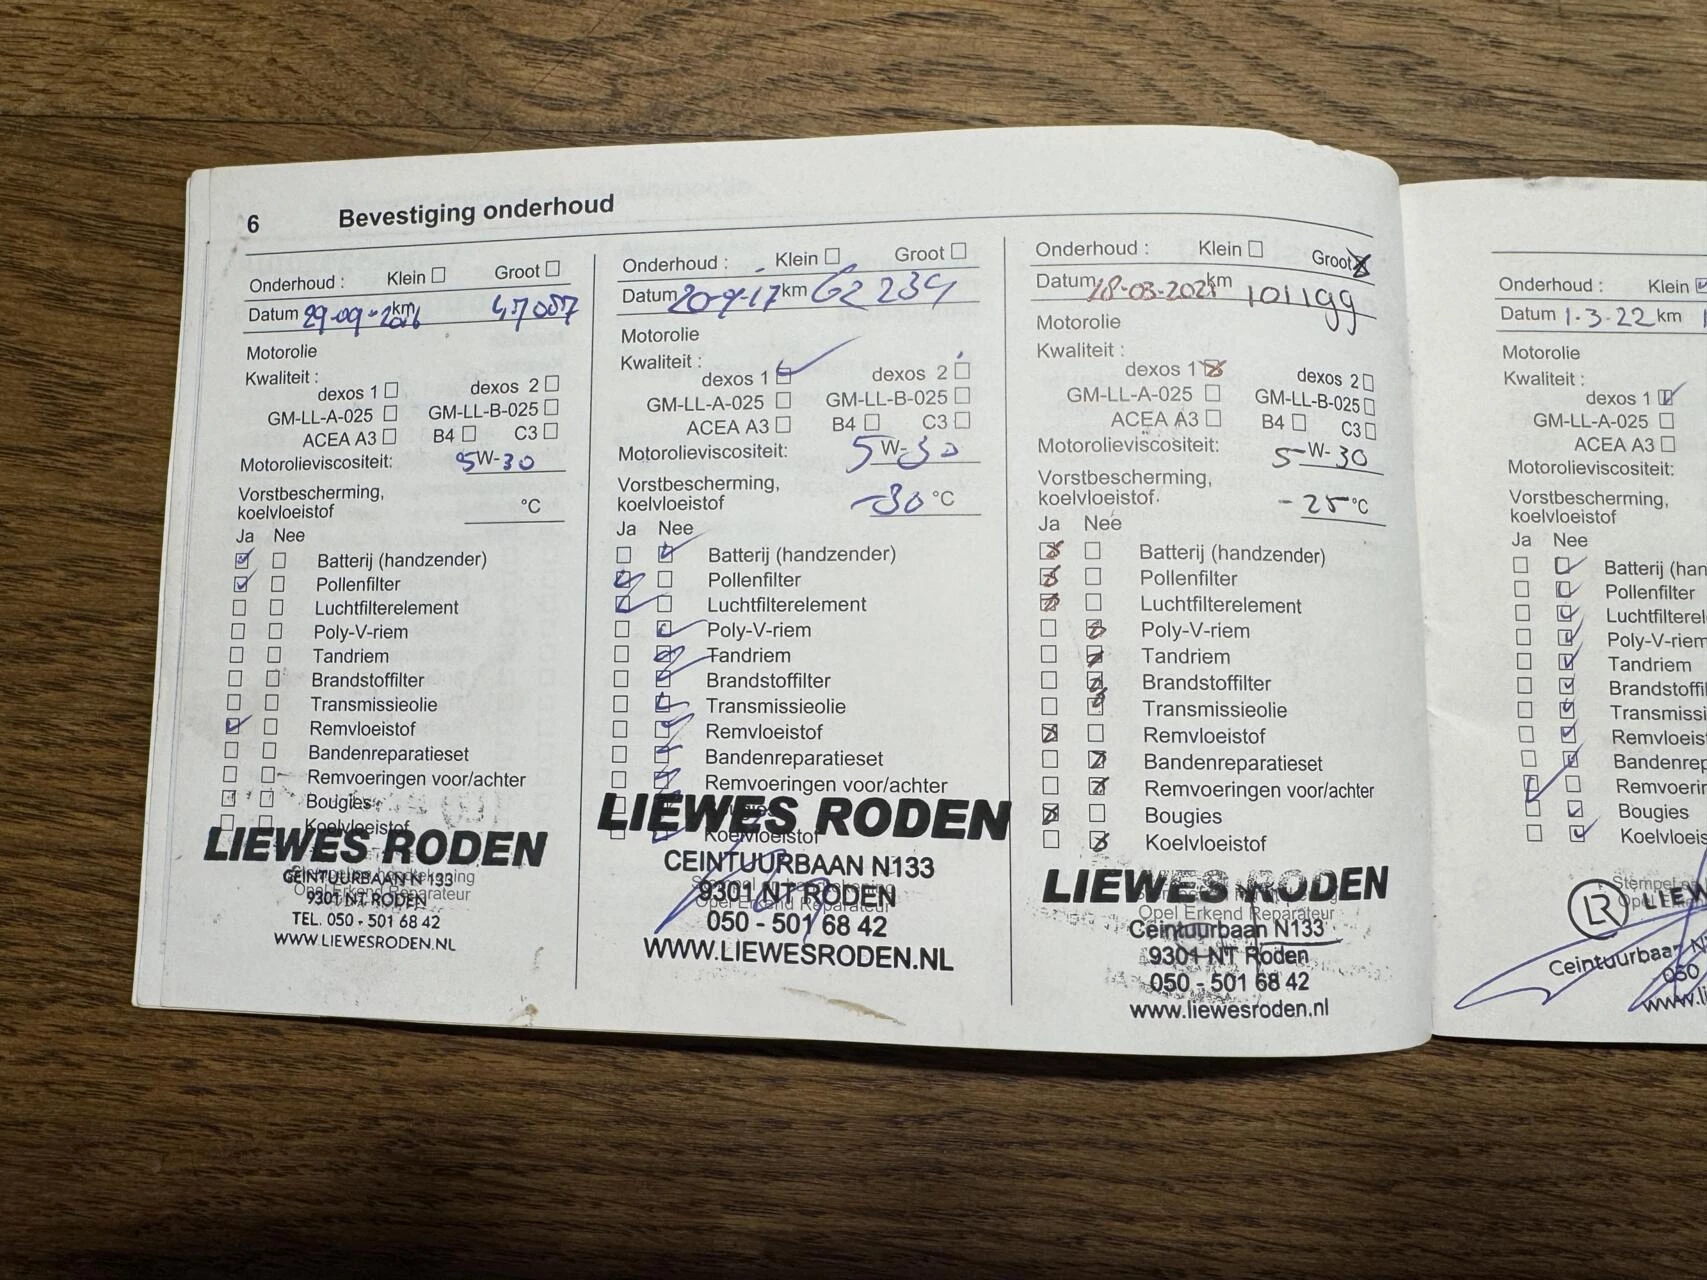 6 Bevestiging onderhoud
Onderhoud : Klein Groot
Datum 29-09-2016 km 47007
Motorolie
Kwaliteit :
dexos 1 dexos 2
GM-LL-A-025 GM-LL-B-025
ACEA A3 B4 C3
Motorolieviscositeit: 5W-30
Vorstbescherming,
koelvloeistof °C
Ja Nee
Batterij (handzender)
Pollenfilter
Luchtfilterelement
Poly-V-riem
Tandriem
Brandstoffilter
Transmissieolie
Remvloeistof
Bandenreparatieset
Remvoeringen voor/achter
Bougies
Koelvloeistof
LIEWES RODEN
Stempel en handtekening
CEINTUURBAAN N 133
Opel Erkend Reparateur
9301 NT RODEN
TEL. 050 - 501 68 42
WWW.LIEWESRODEN.NL
Onderhoud : Klein Groot
Datum 20-9-17 km 62239
Motorolie
Kwaliteit :
dexos 1 dexos 2
GM-LL-A-025 GM-LL-B-025
ACEA A3 B4 C3
Motorolieviscositeit: 5W-30
Vorstbescherming,
koelvloeistof -30 °C
Ja Nee
Batterij (handzender)
Pollenfilter
Luchtfilterelement
Poly-V-riem
Tandriem
Brandstoffilter
Transmissieolie
Remvloeistof
Bandenreparatieset
Remvoeringen voor/achter
Bougies
Koelvloeistof
LIEWES RODEN
CEINTUURBAAN N133
Stempel en handtekening
9301 NT RODEN
Opel Erkend Reparateur
050 - 501 68 42
WWW.LIEWESRODEN.NL
Onderhoud : Klein Groot
Datum 18-03-2021 km 101199
Motorolie
Kwaliteit :
dexos 1 dexos 2
GM-LL-A-025 GM-LL-B-025
ACEA A3 B4 C3
Motorolieviscositeit: 5-W-30
Vorstbescherming,
koelvloeistof -25 °C
Ja Nee
Batterij (handzender)
Pollenfilter
Luchtfilterelement
Poly-V-riem
Tandriem
Brandstoffilter
Transmissieolie
Remvloeistof
Bandenreparatieset
Remvoeringen voor/achter
Bougies
Koelvloeistof
LIEWES RODEN
Opel Erkend Reparateur
Ceintuurbaan N133
9301 NT Roden
050 - 501 68 42
www.liewesroden.nl
Onderhoud : Klein
Datum 1-3-22 km 1
Motorolie
Kwaliteit :
dexos 1
GM-LL-A-025
ACEA A3
Motorolieviscositeit:
Vorstbescherming,
koelvloeistof
Ja Nee
Batterij (han
Pollenfilter
Luchtfilterel
Poly-V-riem
Tandriem
Brandstoffil
Transmissi
Remvloeist
Bandenrep
Remvoerin
Bougies
Koelvloeis
Stempel en
LR LIEW
Opel Erken
Ceintuurbaan N
050
www.li